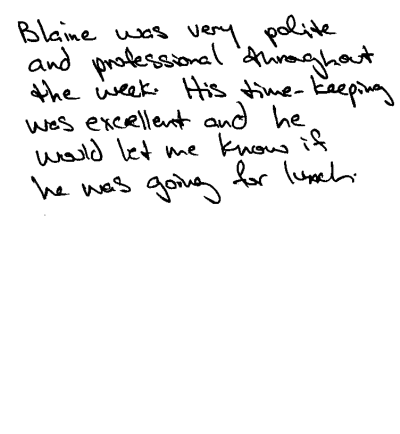 Blaine was very polite
and professional throughout
the week. His time-keeping
was excellent and he
would let me know if
he was going for lunch.